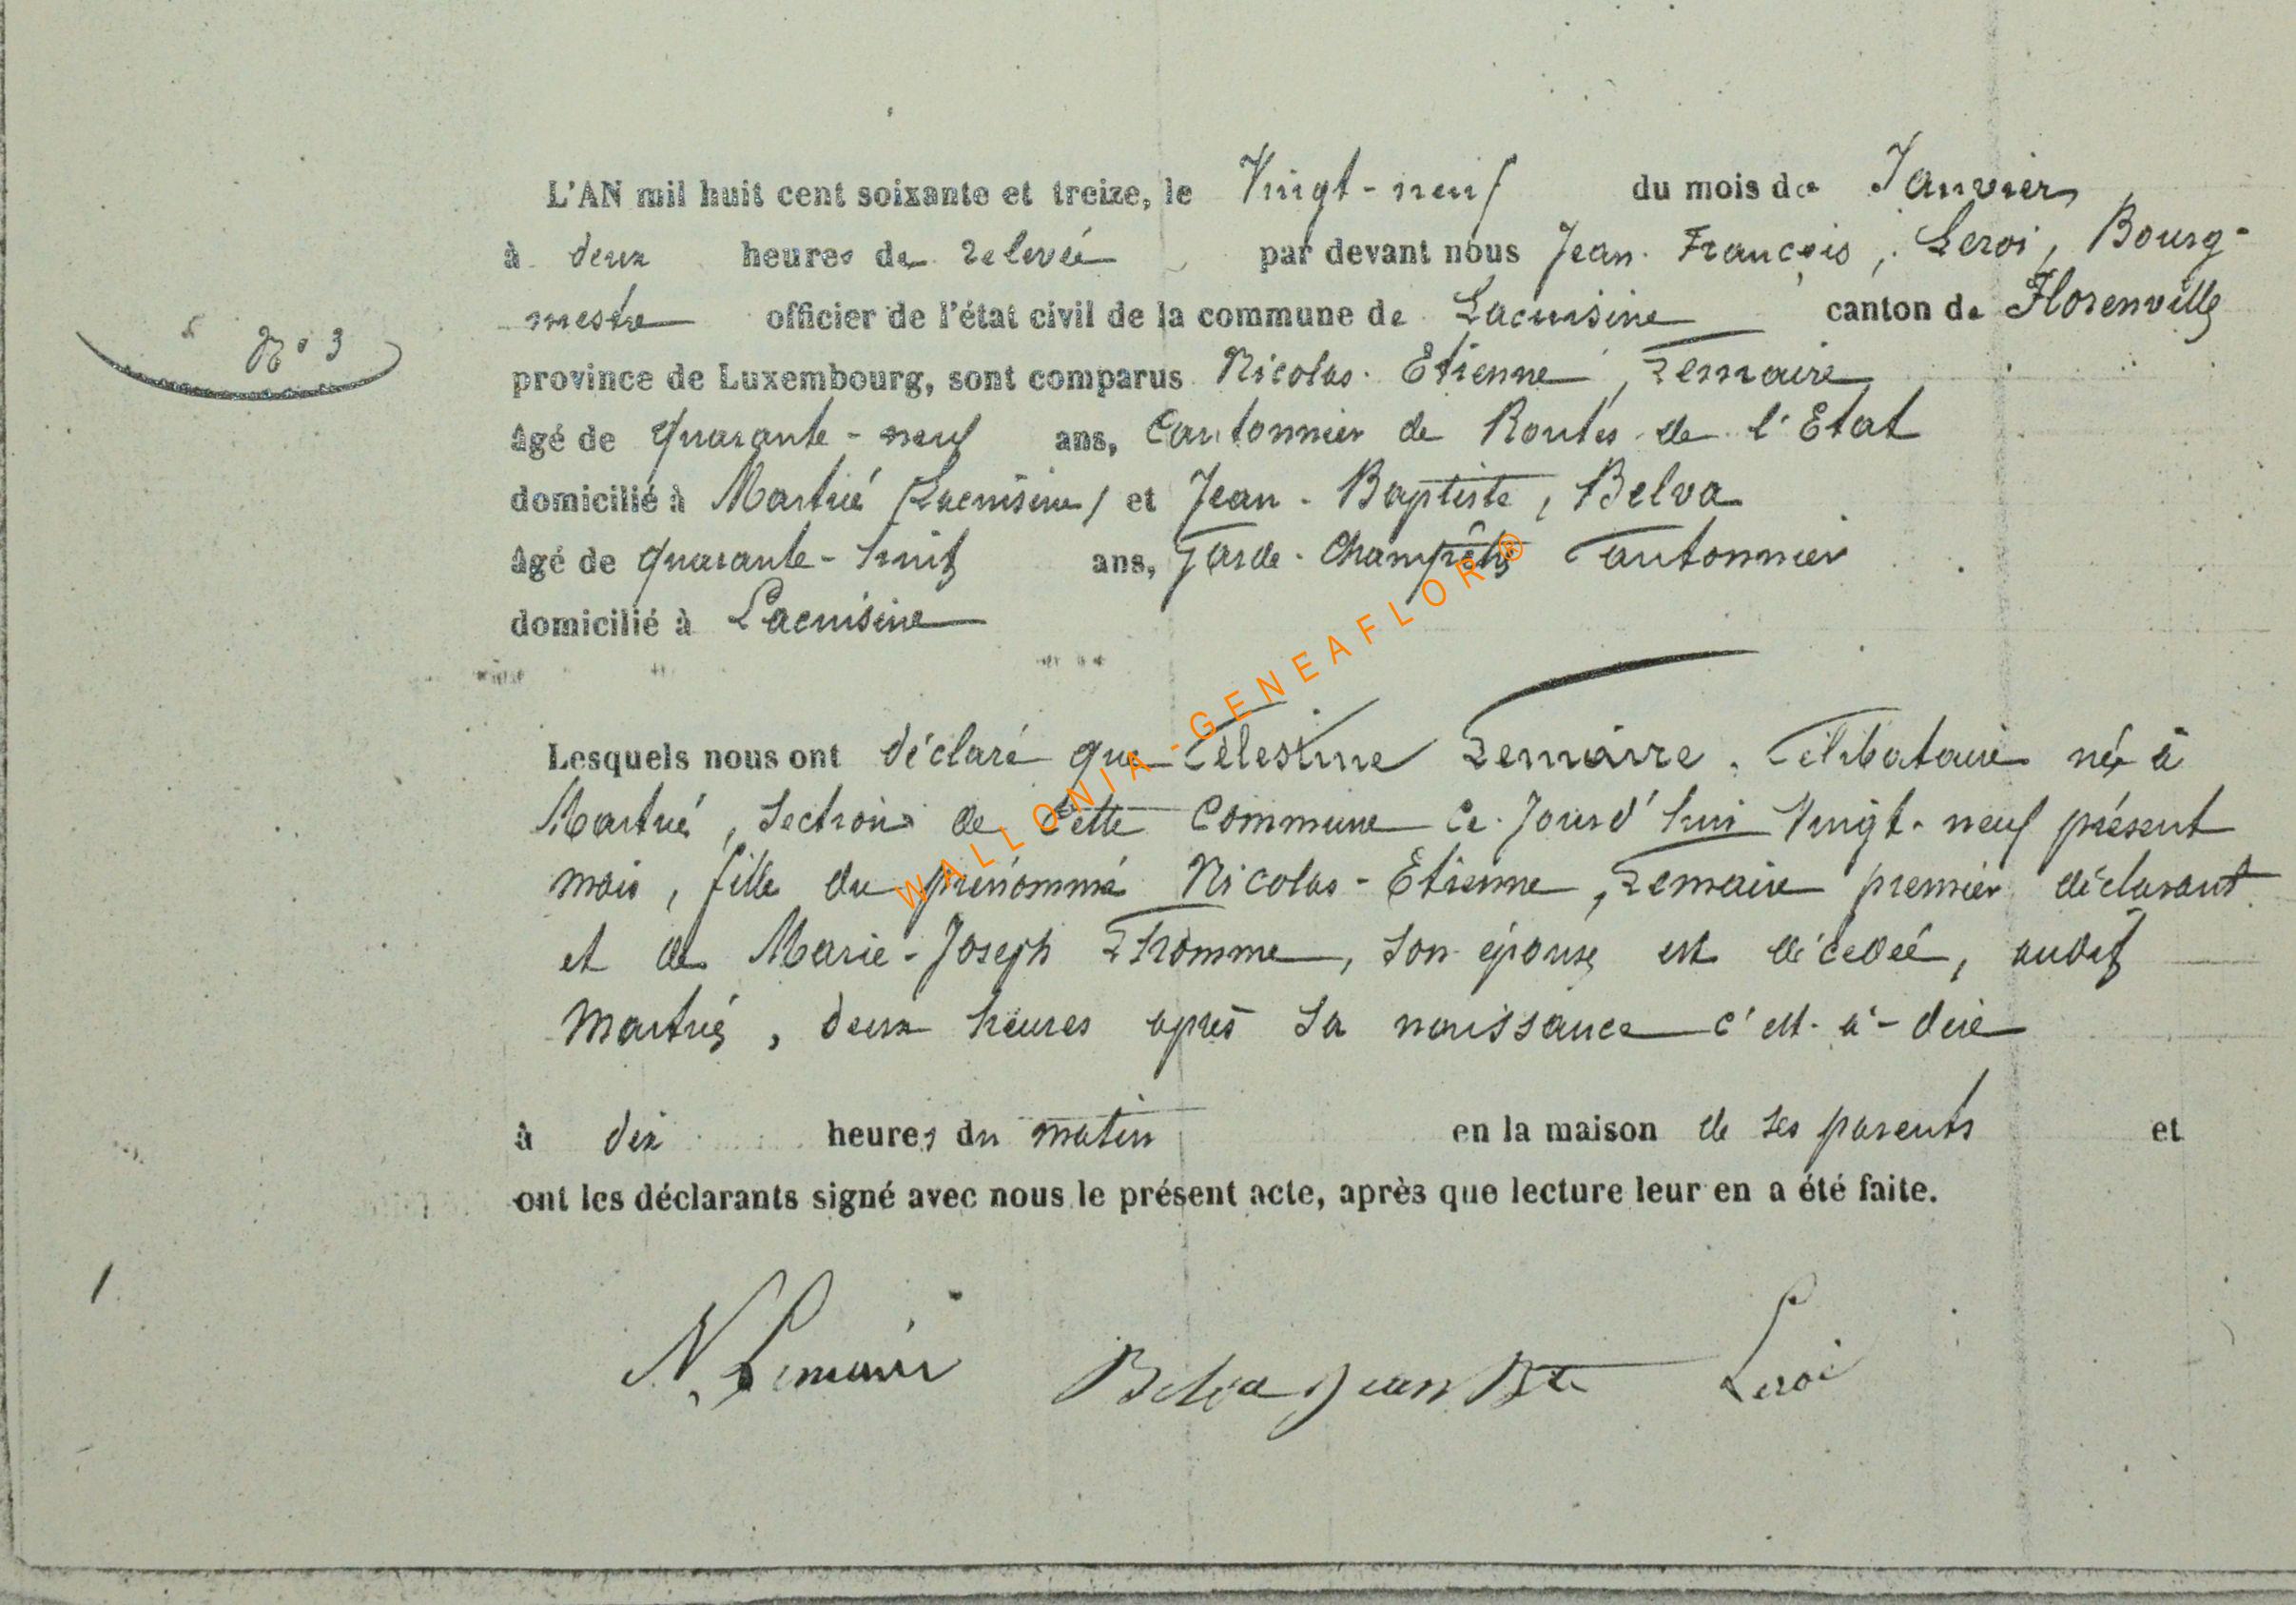 L'AN mil huit cent soixante et treize, le Vingt-neuf du mois de Janvier
à deux heures de relevée par devant nous Jean-François, Leroi, Bourg-
mestre officier de l'état civil de la commune de Lacuisine canton de Florenville
N° 3
province de Luxembourg, sont comparus Nicolas-Etienne, Lemaire
âgé de quarante-neuf ans, Cantonnier de Routes de l'Etat
domicilié à Martué (Lacuisine) et Jean-Baptiste, Belva
âgé de quarante-huit ans, Garde-Champêtre Cantonnier
domicilié à Lacuisine
Lesquels nous ont déclaré que Célestine Lemaire, Célibataire née à
Martué, Section de Cette Commune Ce-Jourd'hui Vingt-neuf présent
mois, fille du prénommé Nicolas-Etienne, Lemaire premier déclarant
et de Marie-Joseph Lhomme, son épouse est décedée, audit
Martué, deux heures après sa naissance c'est-à-dire
à dix heures du matin en la maison de ses parents et
ont les déclarants signé avec nous le présent acte, après que lecture leur en a été faite.
N. Lemaire Belva Jean Bte Leroi
WALLONIA-GENEAFLOR®